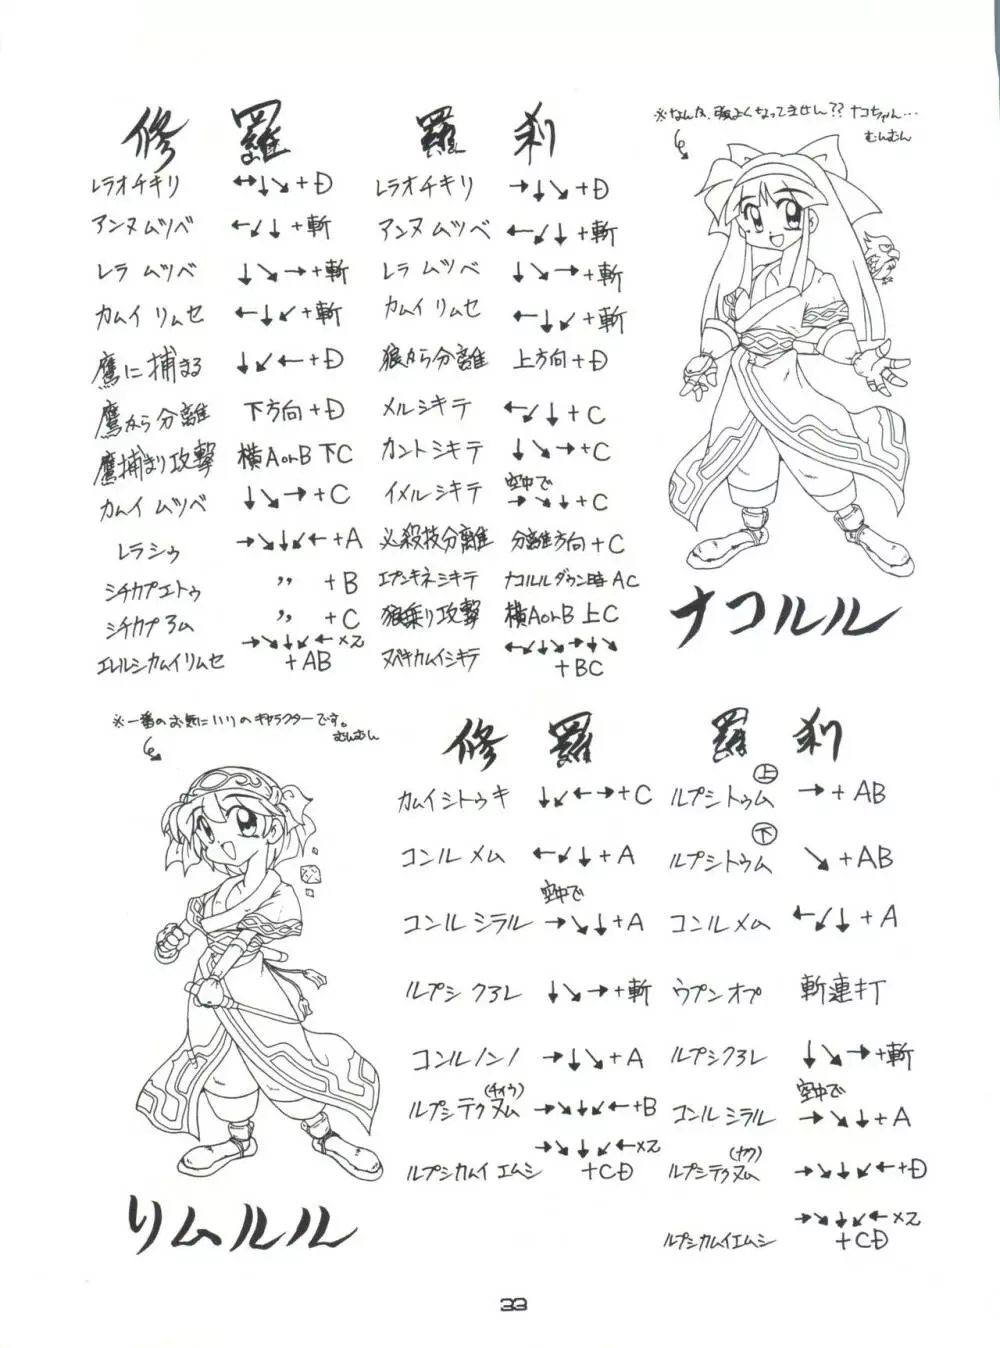 ※なんか、頭よくなってません?? ナコちゃん…
むんむん
修 羅 羅 刹
レラオチキリ ↔↓↘+Ð レラオチキリ →↓↘+Ð
アンヌムツベ ←↙↓+斬 アンヌムツベ ←↙↓+斬
レラムツベ ↓↘→+斬 レラムツベ ↓↘→+斬
カムイリムセ ←↓↙+斬 カムイリムセ ←↓↙+斬
鷹に捕まる ↓↙←+Ð 狼から分離 上方向+Ð
鷹から分離 下方向+Ð メルシキテ ←↙↓+C
鷹捕まり攻撃 横AorB 下C カントシキテ ↓↘→+C
カムイムツベ ↓↘→+C イメルシキテ 空中で →↘↓+C
レラシゥ →↘↓↙←+A 必殺技分離 分離方向+C
シチカプエトゥ 〃 +B エプンキネシキテ ナコルルダウン時AC
シチカプヨム 〃 +C 狼乗り攻撃 横AorB 上C
エレルシカムイリムセ →↘↓↙←×2 +AB ヌペキカムイシキテ ←↙↓↘→↓↘ +BC
ナコルル
※一番のお気にいりのキャラクターです。
むんむん
修 羅 羅 刹
カムイシトゥキ ↓↙←→+C ルプシトゥム 上 →+AB
コンルメム ←↙↓+A ルプシトゥム 下 ↘+AB
コンルシラル 空中で →↘↓+A コンルメム ←↙↓+A
ルプシクヨレ ↓↘→+斬 ウプンオプ 斬連打
コンルノンノ →↓↘+A ルプシクヨレ ↓↘→+斬
ルプシテクヌム(チイウ) →↘↓↙←+B コンルシラル 空中で →↘↓+A
ルプシカムイエムシ →↘↓↙←×2 +CÐ ルプシテクヌム(ナウ) →↘↓↙←+Ð
ルプシカムイエムシ →↘↓↙←×2 +CÐ
リムルル
33